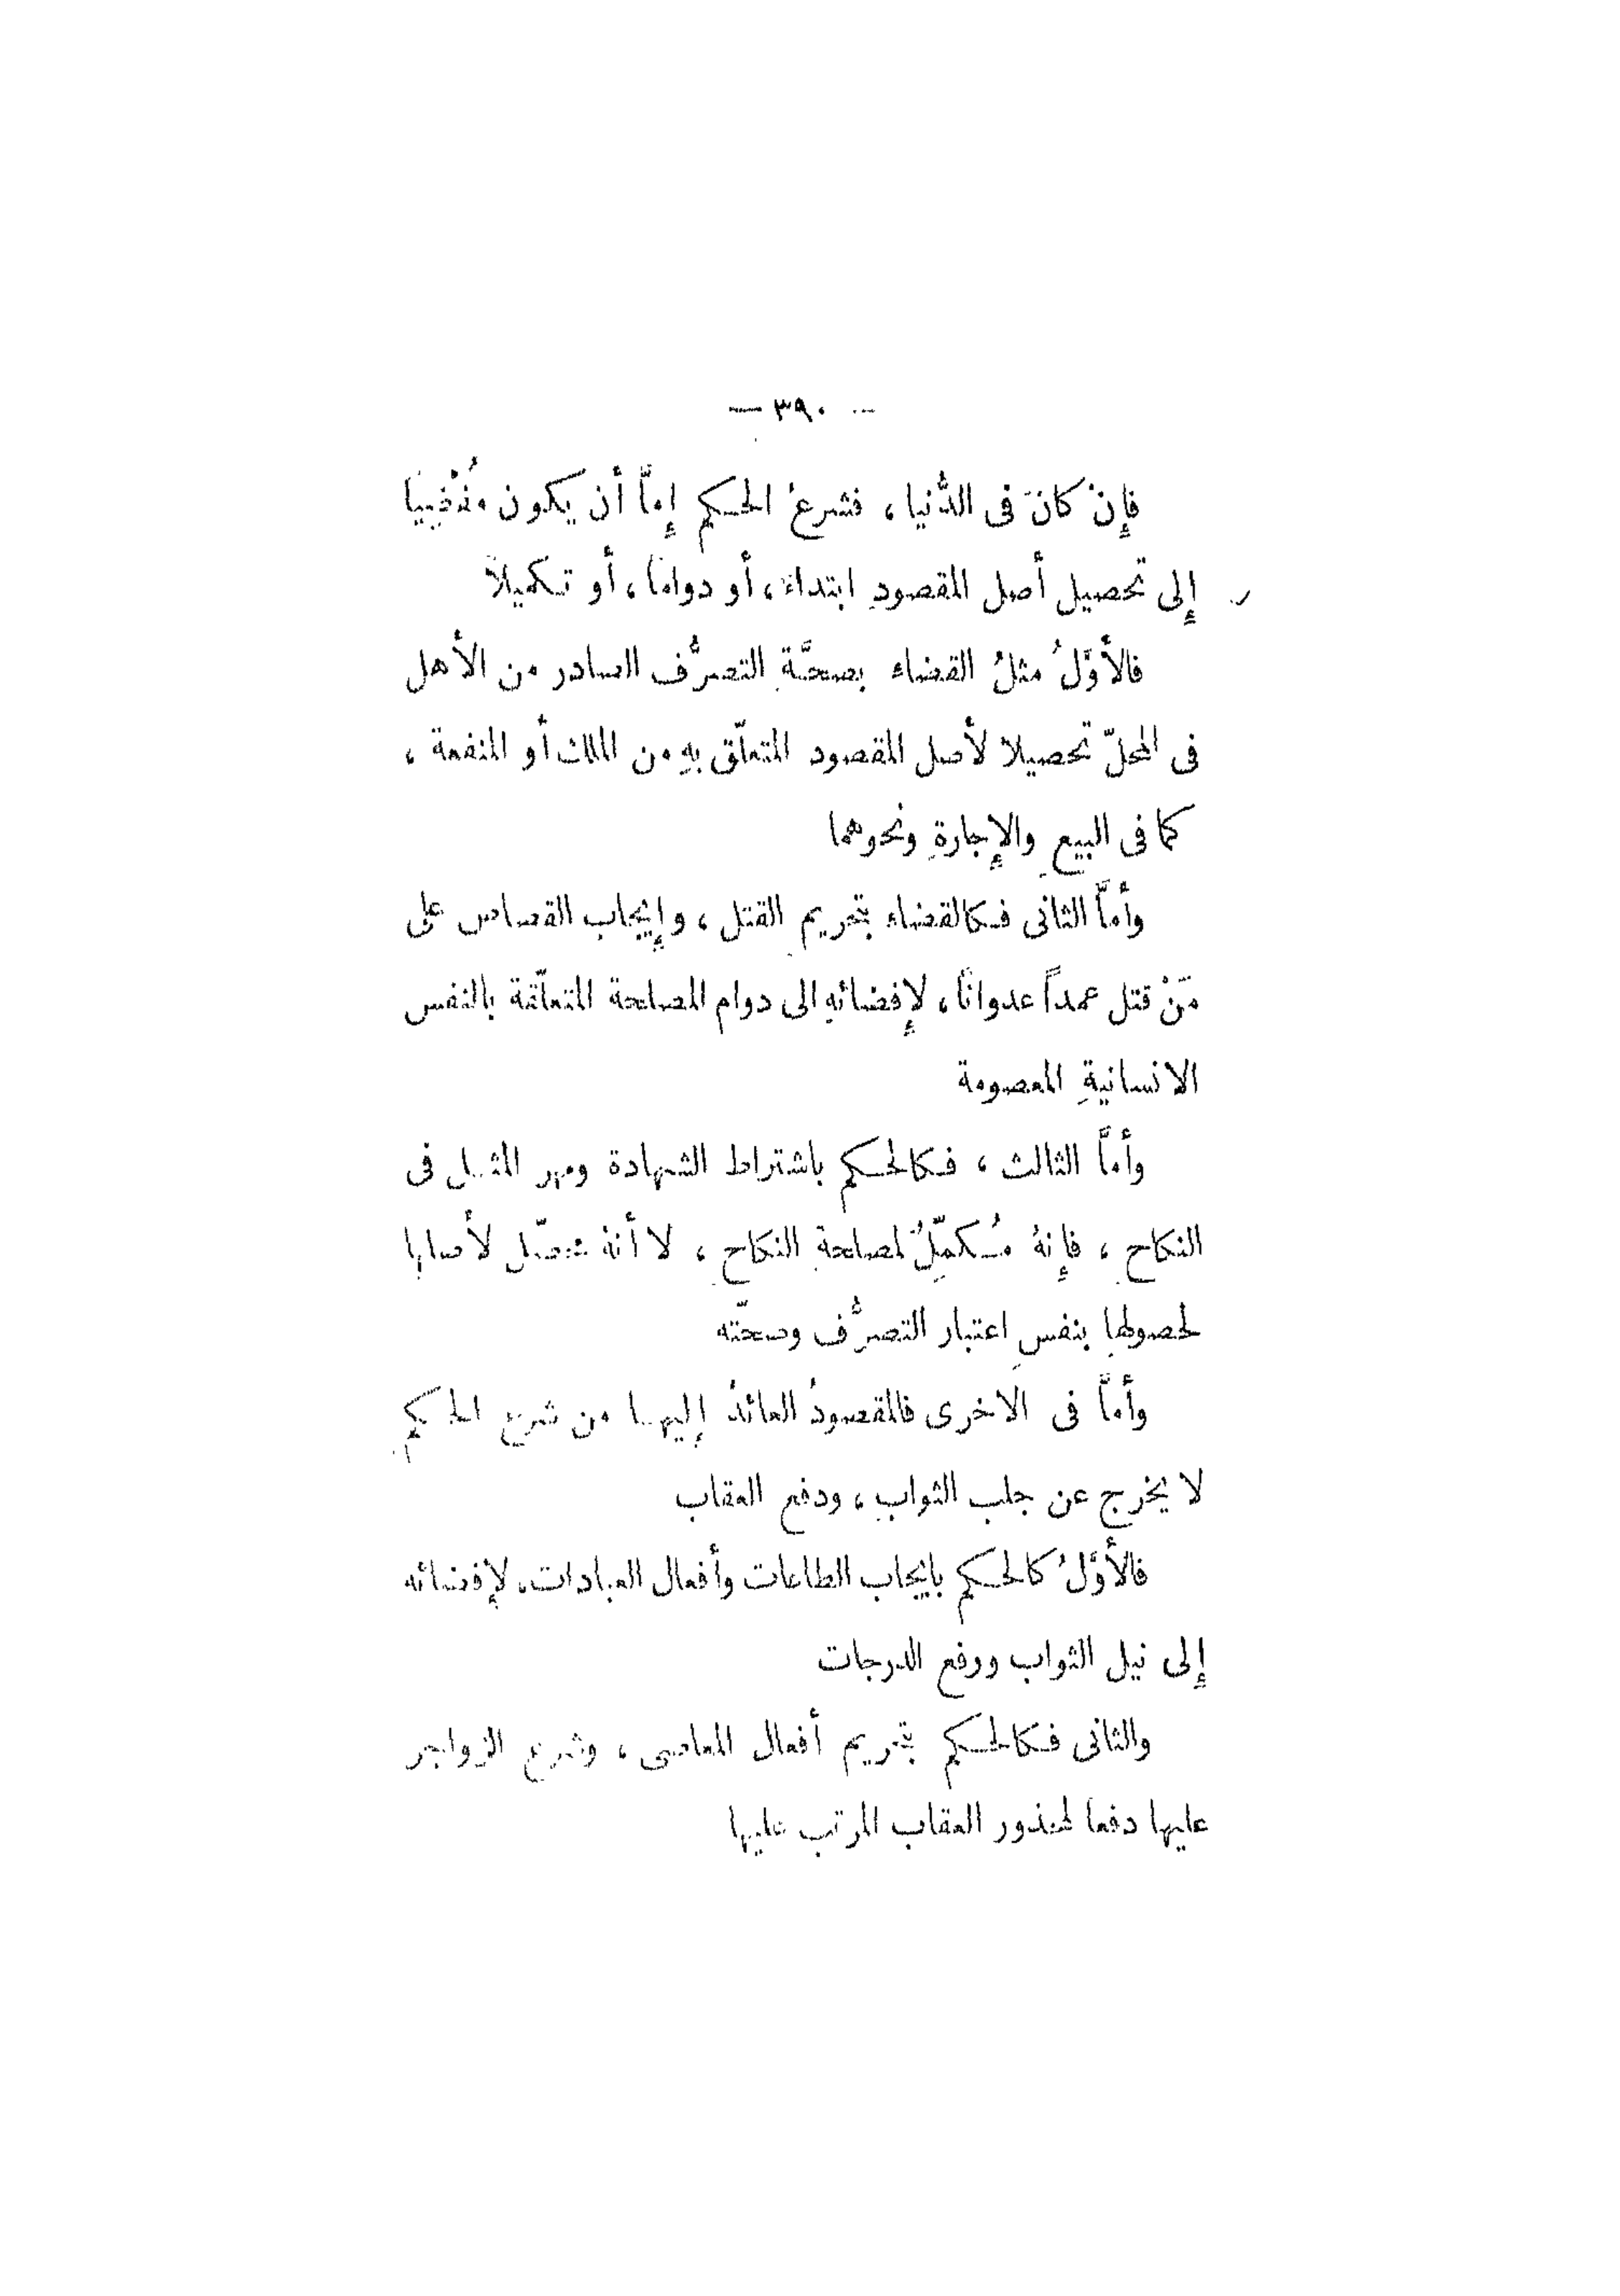 — ٣٩٠ —
فإِنْ كانَ فى الدُّنيا ، فشرعُ الحكم إِمَّا أن يكون مُفْضِيًا
إِلى تحصيل أصل المقصودِ ابتداءً ، أو دوامًا ، أو تكميلاً
فالأوَّلُ مثلُ القضاء بصحَّةِ التصرُّف الصادر من الأهل
فى المحلّ تحصيلا لأصل المقصود المتعلّق بهِ من الملك أو المنفعة ،
كما فى البيعِ والإِجارةِ ونحوهما
وأمَّا الثانى فكالقضاء بتحريم القتل ، وإِيجاب القصاص على
مَنْ قتل عمداً عدوانًا ، لإِفضائهِ الى دوام المصلحة المتعلّقة بالنفس
الانسانيةِ المعصومة
وأمَّا الثالث ، فكالحكم باشتراط الشهادة ومهر المثل فى
النكاحِ ، فإِنهُ مُكمِّلٌ لمصلحةِ النكاحِ ، لا أنهُ محصّل لأصلها
لحصولها بنفسِ اعتبار التصرُّف وصحّته
وأمَّا فى الاخرى فالمقصودُ العائدُ إِليها من شرع الحكم
لا يخرج عن جلب الثوابِ ، ودفع العقاب
فالأوَّلُ كالحكم بايجاب الطاعات وأفعال العبادات، لإفضائه
إِلى نيل الثواب ورفع الدرجات
والثانى فكالحكم بتحريم أفعال المعاصى ، وشرع الزواجر
عليها دفعا لمحذور العقاب المرتب عليها